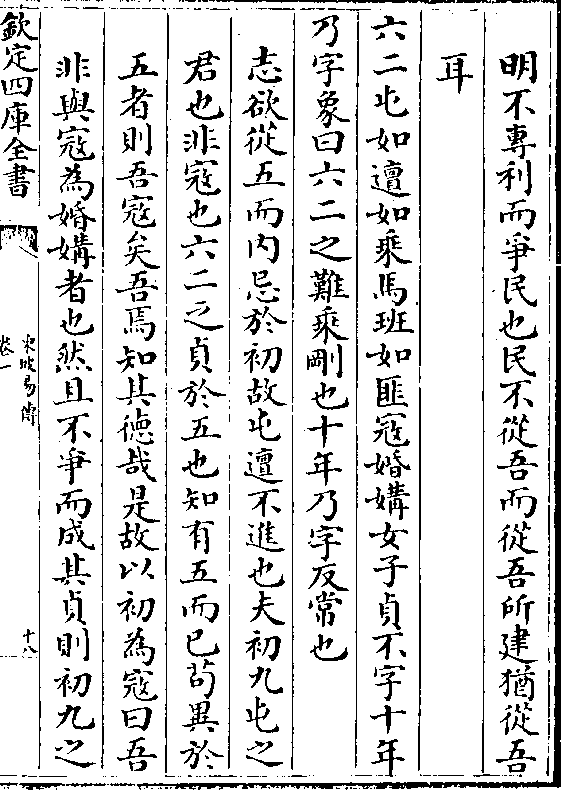 明不專利而爭民也民不從吾而從吾所建猶從吾
耳
六二屯如邅如乘馬班如匪寇婚媾女子貞不字十年
乃字象曰六二之難乘剛也十年乃字反常也
志欲從五而内忌於初故屯邅不進也夫初九屯之
君也非寇也六二之貞於五也知有五而已茍異於
五者則吾寇矣吾焉知其徳哉是故以初為寇曰吾
非與寇為婚媾者也然且不爭而成其貞則初九之
欽定四庫全書
東坡易傳
卷一
十八